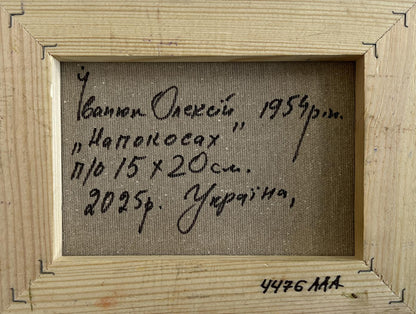 Іванюк Олексій 1954р.н.
„Напокосах"
п/о 15 х 20 см.
2025р. Україна,
4476 AAA